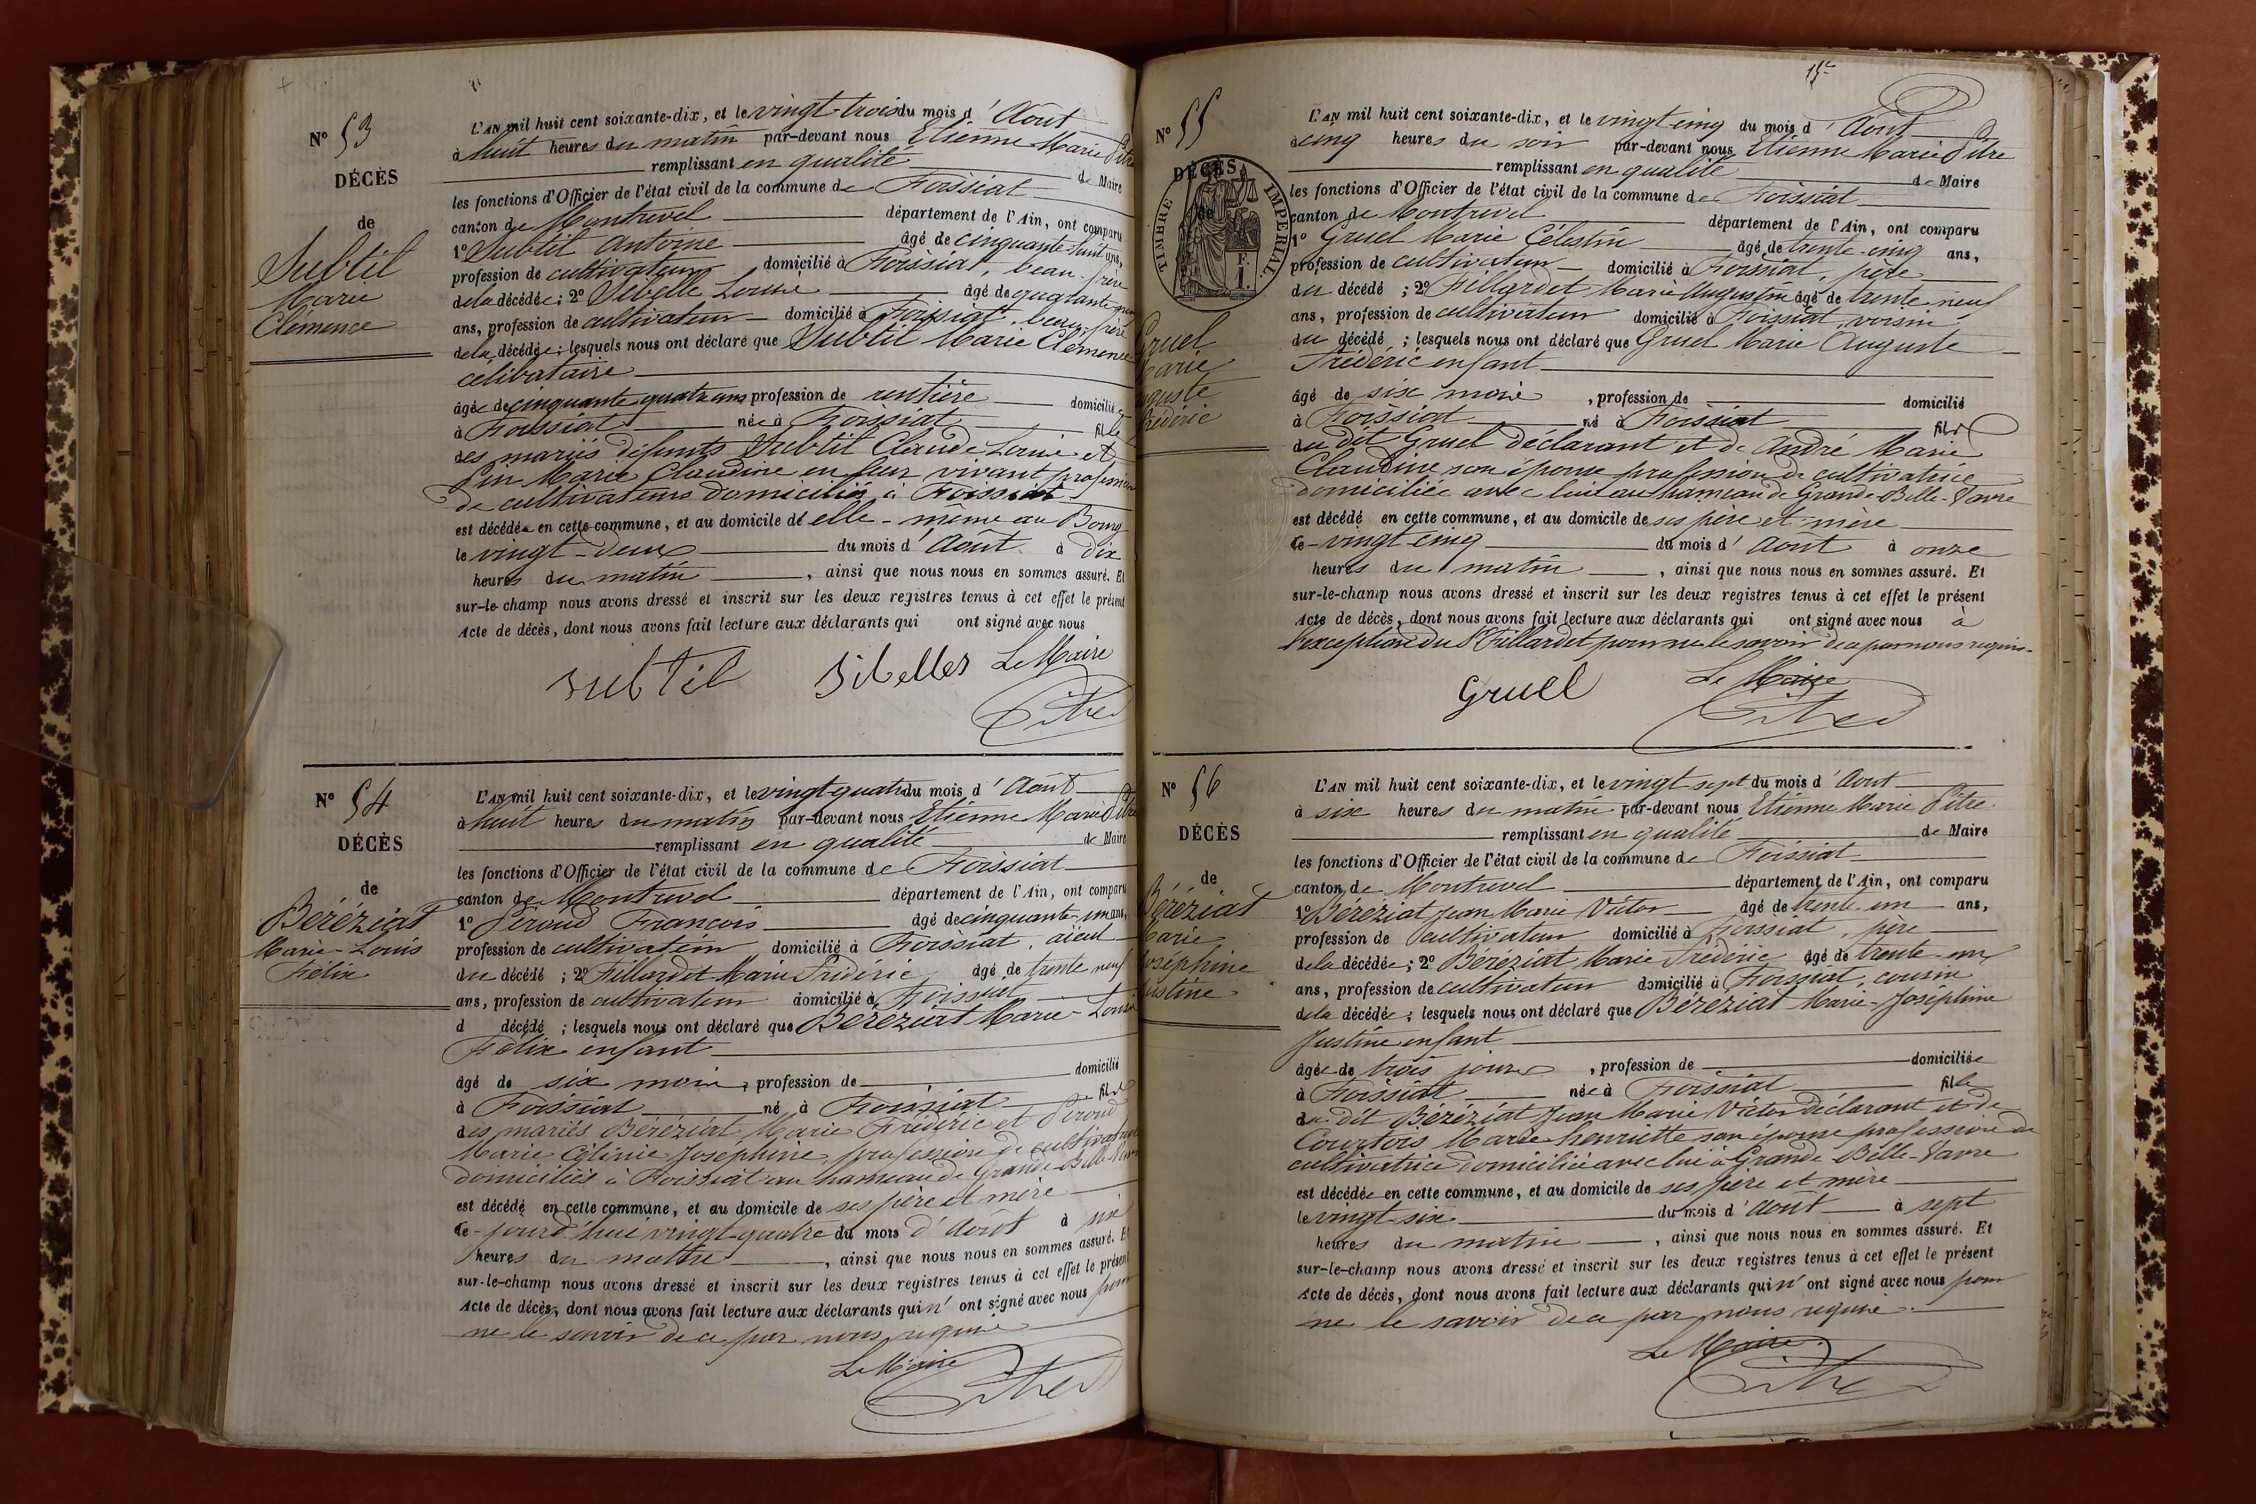 N° 53
DÉCÈS
de
Subtil
Marie
Clémence
L'AN mil huit cent soixante-dix, et le vingt-trois du mois d'Août
à huit heures du matin par-devant nous Etienne Marie Pitre
remplissant en qualité de Maire
les fonctions d'Officier de l'état civil de la commune de Foissiat
canton de Montrevel département de l'Ain, ont comparu
1° Subtil Antoine âgé de cinquante-huit ans,
profession de cultivateur domicilié à Foissiat, beau-frère
de la décédée; 2° Sibelle Louis âgé de quarante
ans, profession de cultivateur domicilié à Foissiat, beau-frère
de la décédée; lesquels nous ont déclaré que Subtil Marie Clémence
célibataire
âgée de cinquante quatre ans profession de rentière domiciliée
à Foissiat née à Foissiat fille
des mariés défunts Subtil Claude Louis et
Marie Claudine en leur vivant profession
de cultivateurs domiciliés à Foissiat
est décédée en cette commune, et au domicile d'elle-même au Bourg
le vingt-deux du mois d'Août à dix
heures du matin, ainsi que nous nous en sommes assuré. Et
sur-le-champ nous avons dressé et inscrit sur les deux registres tenus à cet effet le présent
Acte de décès, dont nous avons fait lecture aux déclarants qui ont signé avec nous
subtil Sibelles Le Maire
Pitre
N° 54
DÉCÈS
de
Béréziat
Marie-Louis
Félix
L'AN mil huit cent soixante-dix, et le vingt-quatre du mois d'Août
à huit heures du matin par-devant nous Etienne Marie Pitre
remplissant en qualité de Maire
les fonctions d'Officier de l'état civil de la commune de Foissiat
canton de Montrevel département de l'Ain, ont comparu
1° Péroud François âgé de cinquante-un ans,
profession de cultivateur domicilié à Foissiat, aïeul
du décédé; 2° Fillardet Marie Frédéric âgé de trente neuf
ans, profession de cultivateur domicilié à Foissiat
d décédé; lesquels nous ont déclaré que Béréziat Marie-Louis
Félix enfant
âgé de six mois, profession de domicilié
à Foissiat né à Foissiat fils
des mariés Béréziat Marie Frédéric et Péroud
Marie Célinie Joséphine, profession de cultivateurs
domiciliés à Foissiat au hameau de Grande Belle-Vavre
est décédé en cette commune, et au domicile de ses père et mère
ce-jourd'hui vingt-quatre du mois d'Août à six
heures du matin, ainsi que nous nous en sommes assuré. Et
sur-le-champ nous avons dressé et inscrit sur les deux registres tenus à cet effet le présent
Acte de décès, dont nous avons fait lecture aux déclarants qui n'ont signé avec nous pour
ne le savoir de ce par nous requis
Le Maire
Pitre
N° 55
TIMBRE IMPERIAL
F. 1.
DÉCÈS
de
Gruel
Marie
Auguste
Frédéric
L'AN mil huit cent soixante-dix, et le vingt cinq du mois d'Août
à cinq heures du soir par-devant nous Etienne Marie Pitre
remplissant en qualité de Maire
les fonctions d'Officier de l'état civil de la commune de Foissiat
canton de Montrevel département de l'Ain, ont comparu
1° Gruel Marie Célestin âgé de trente-cinq ans,
profession de cultivateur domicilié à Foissiat, père
du décédé; 2° Fillardet Marie Augustin âgé de trente-neuf
ans, profession de cultivateur domicilié à Foissiat, voisin
du décédé; lesquels nous ont déclaré que Gruel Marie Auguste
Frédéric enfant
âgé de six mois, profession de domicilié
à Foissiat né à Foissiat fils
du dit Gruel déclarant et de André Marie
Claudine son épouse profession de cultivatrice
domiciliée avec lui au hameau de Grande-Belle-Vavre
est décédé en cette commune, et au domicile de ses père et mère
ce-vingt cinq du mois d'Août à onze
heures du matin, ainsi que nous nous en sommes assuré. Et
sur-le-champ nous avons dressé et inscrit sur les deux registres tenus à cet effet le présent
Acte de décès, dont nous avons fait lecture aux déclarants qui ont signé avec nous à
l'exception du S Fillardet pour ne le savoir de ce par nous requis
Gruel Le Maire
Pitre
N° 56
DÉCÈS
de
Béréziat
Marie
Joséphine
Justine
L'AN mil huit cent soixante-dix, et le vingt-sept du mois d'Aout
à six heures du matin par-devant nous Etienne Marie Pitre
remplissant en qualité de Maire
les fonctions d'Officier de l'état civil de la commune de Foissiat
canton de Montrevel département de l'Ain, ont comparu
1° Béréziat Jean Marie Victor âgé de trente un ans,
profession de cultivateur domicilié à Foissiat, père
de la décédée; 2° Béréziat Marie Frédéric âgé de trente-un
ans, profession de cultivateur domicilié à Foissiat, cousin
de la décédée; lesquels nous ont déclaré que Béréziat Marie-Joséphine
Justine enfant
âgée de trois jours, profession de domiciliée
à Foissiat née à Foissiat fille
du dit Béréziat Jean Marie Victor déclarant et de
Courtois Marie henriette son épouse profession de
cultivatrice domiciliée avec lui à Grande Belle-Vavre
est décédée en cette commune, et au domicile de ses père et mère
le vingt-six du mois d'Août à sept
heures du matin, ainsi que nous nous en sommes assuré. Et
sur-le-champ nous avons dressé et inscrit sur les deux registres tenus à cet effet le présent
Acte de décès, dont nous avons fait lecture aux déclarants qui n'ont signé avec nous pour
ne le savoir de ce par nous requis.
Le Maire
Pitre